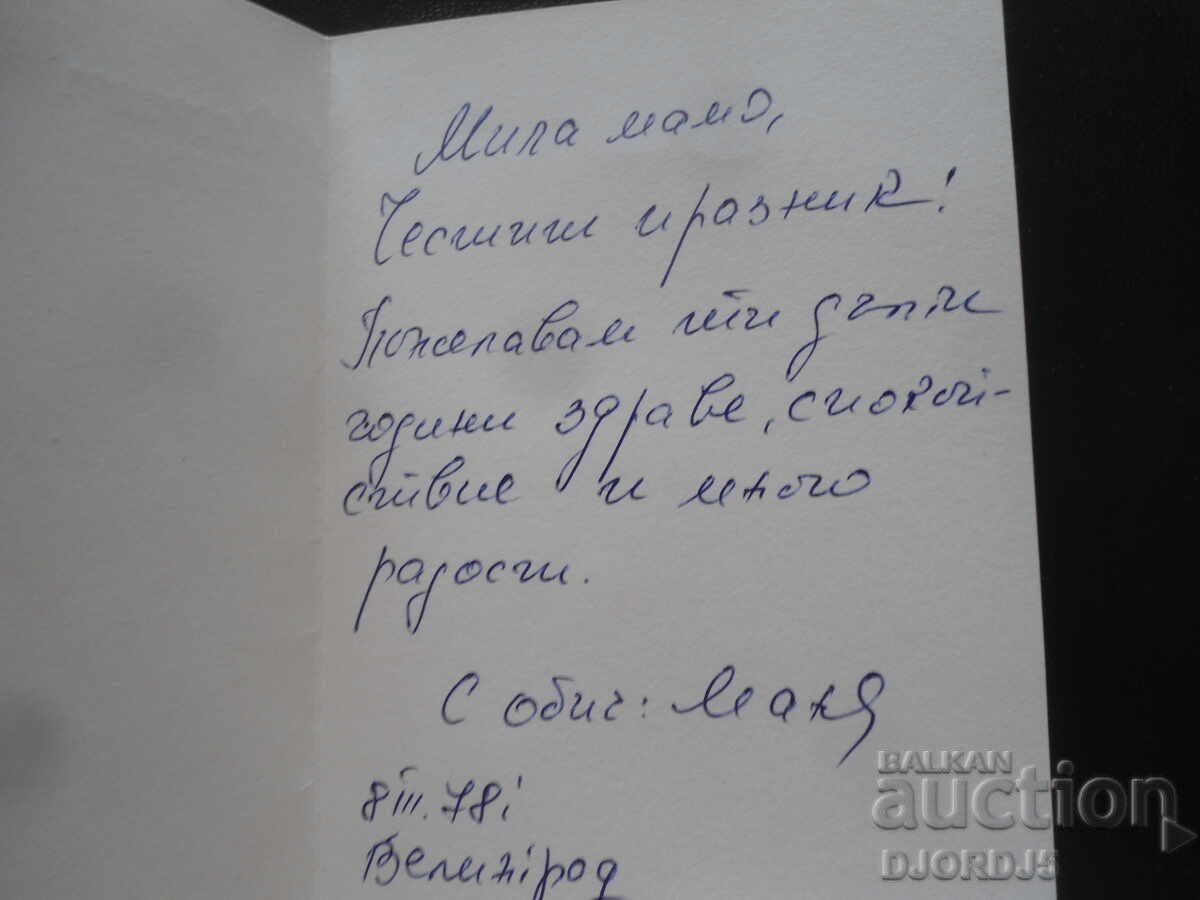 Мила мамо,
Честит празник!
Пожелавам ти дълги
години здраве, спокой-
ствие и много
радости.
С обич:
8 III. 78г
BALKAN
auction
DJORDJ5